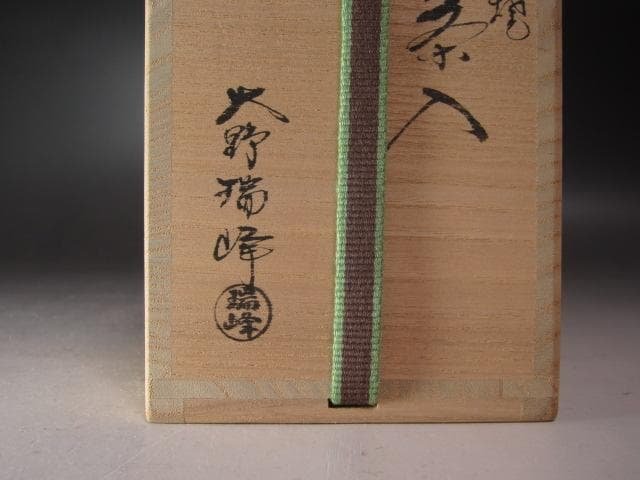 焼
茶入
大野瑞峰
瑞峰